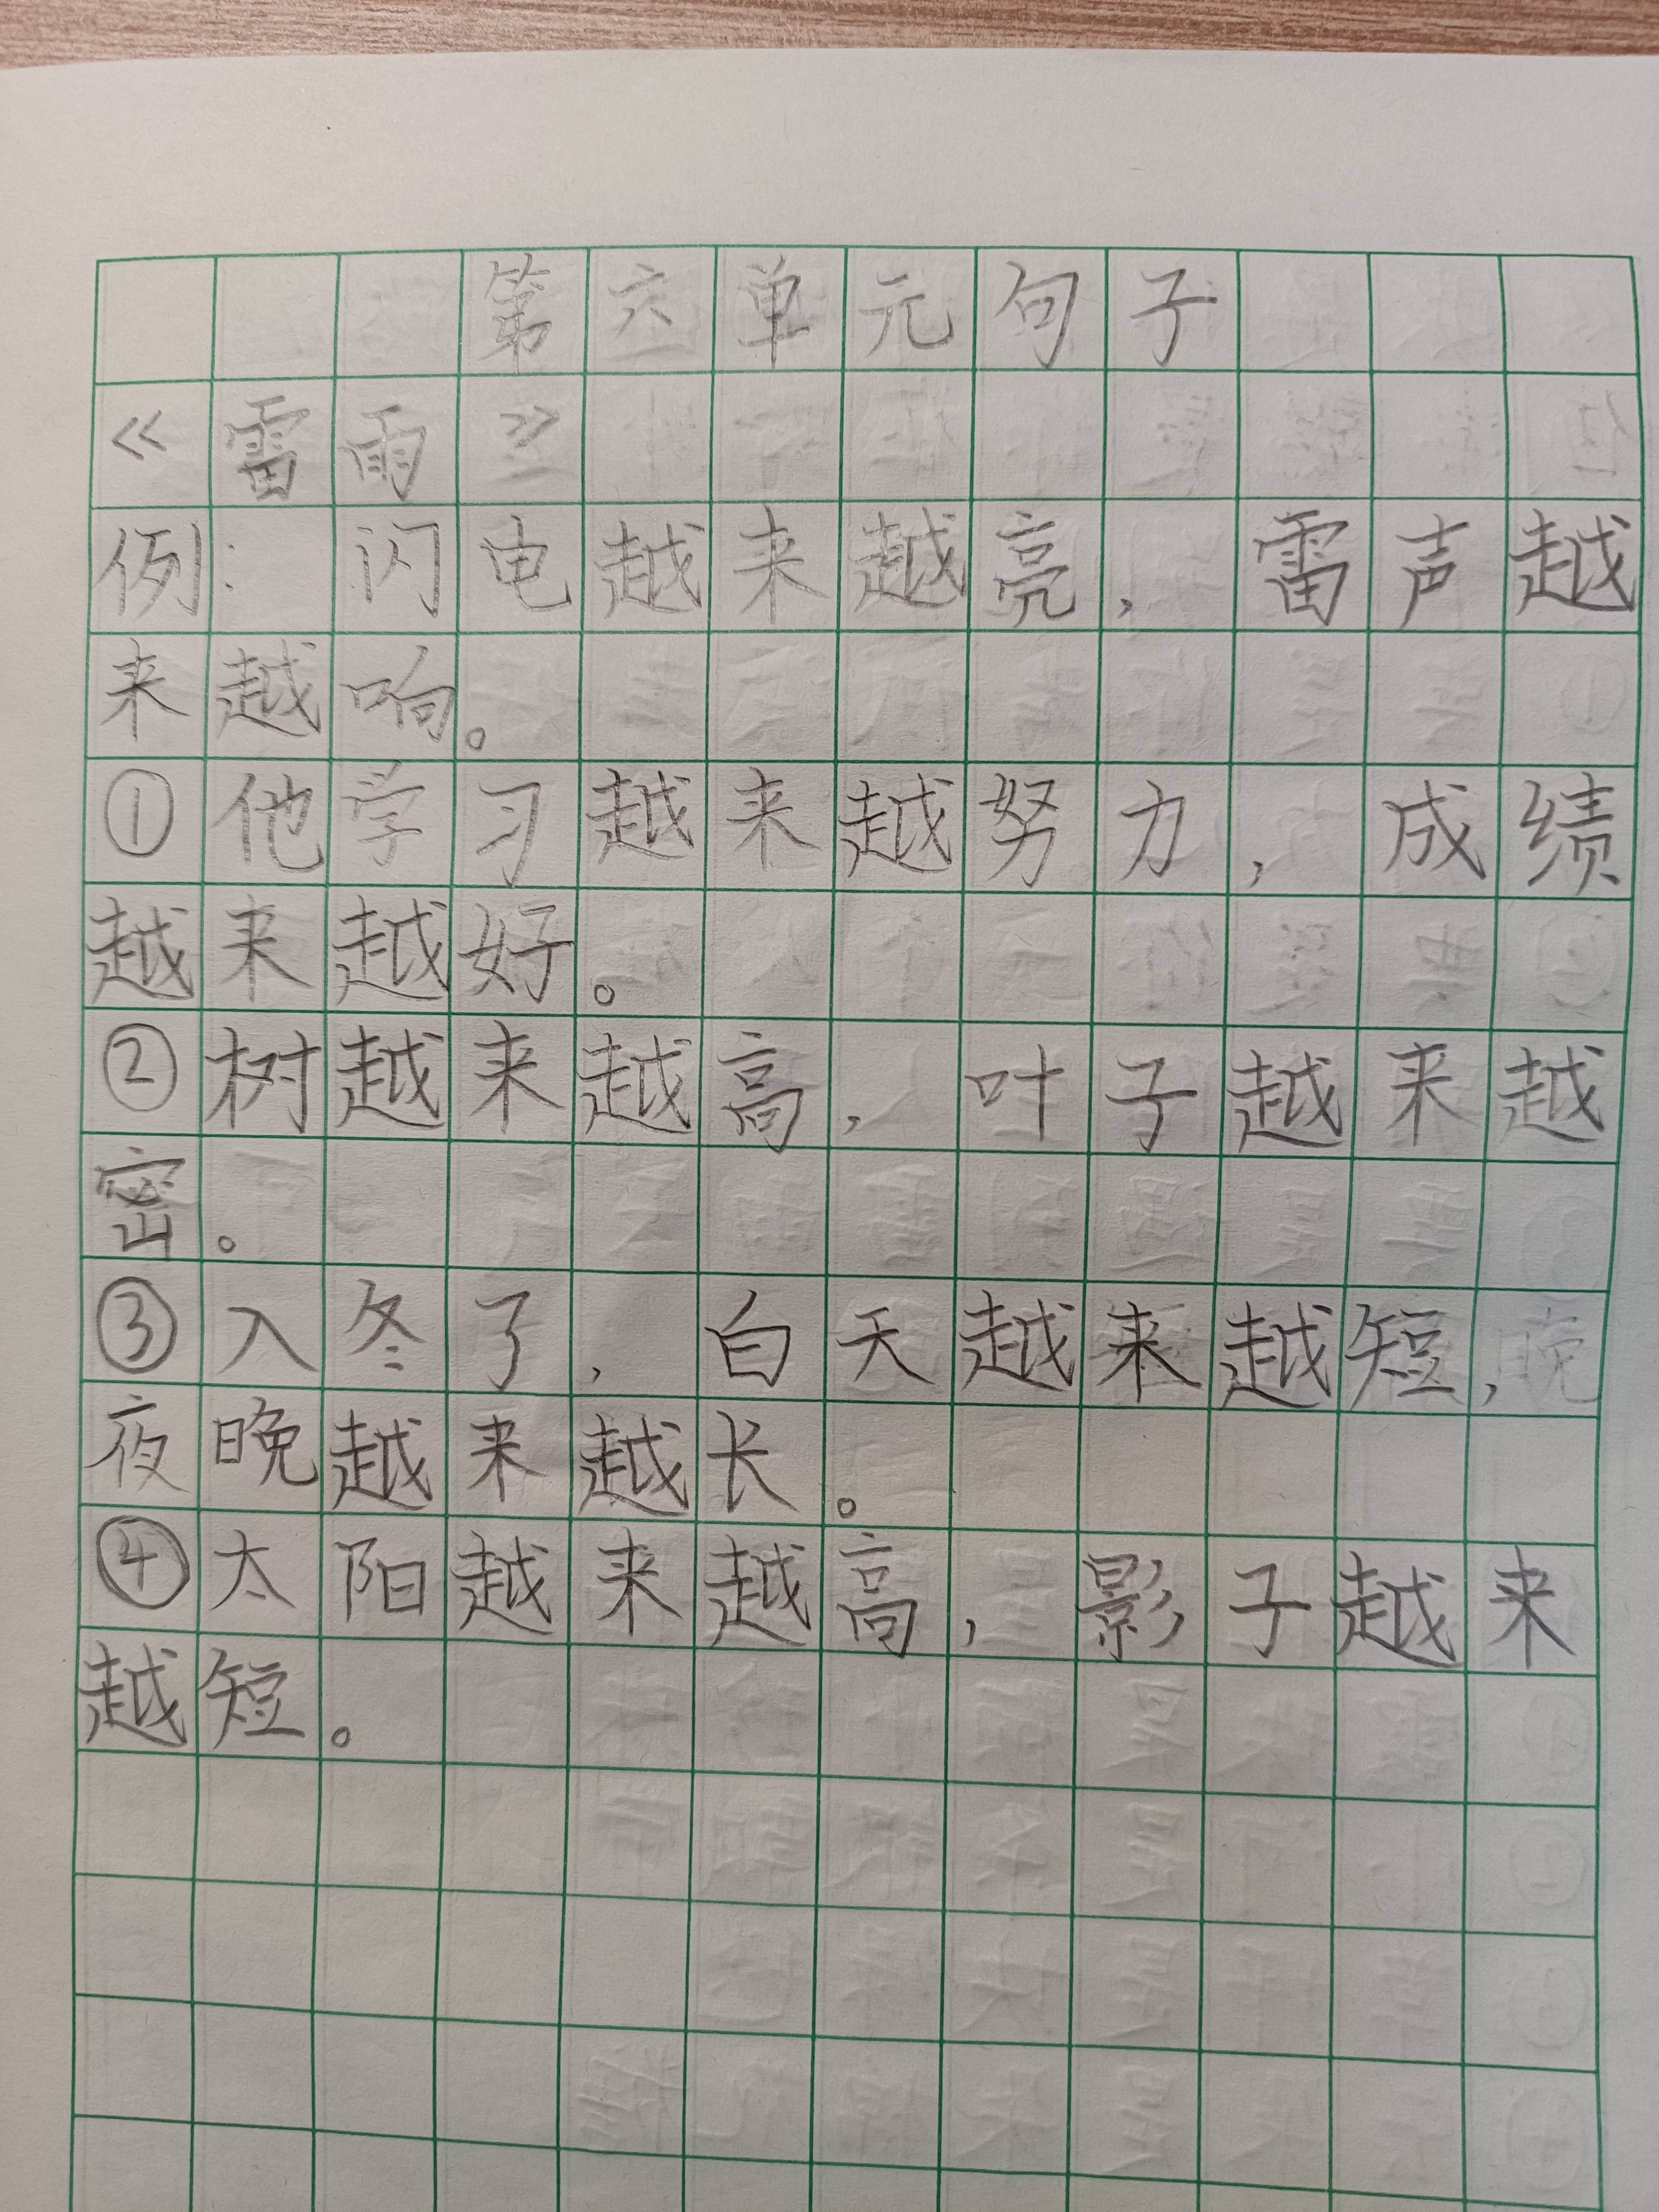 第六单元句子
《雷雨》
例:闪电越来越亮,雷声越
来越响。
①他学习越来越努力,成绩
越来越好。
②树越来越高,叶子越来越
密。
③入冬了,白天越来越短,
夜晚越来越长。
④太阳越来越高,影子越来
越短。